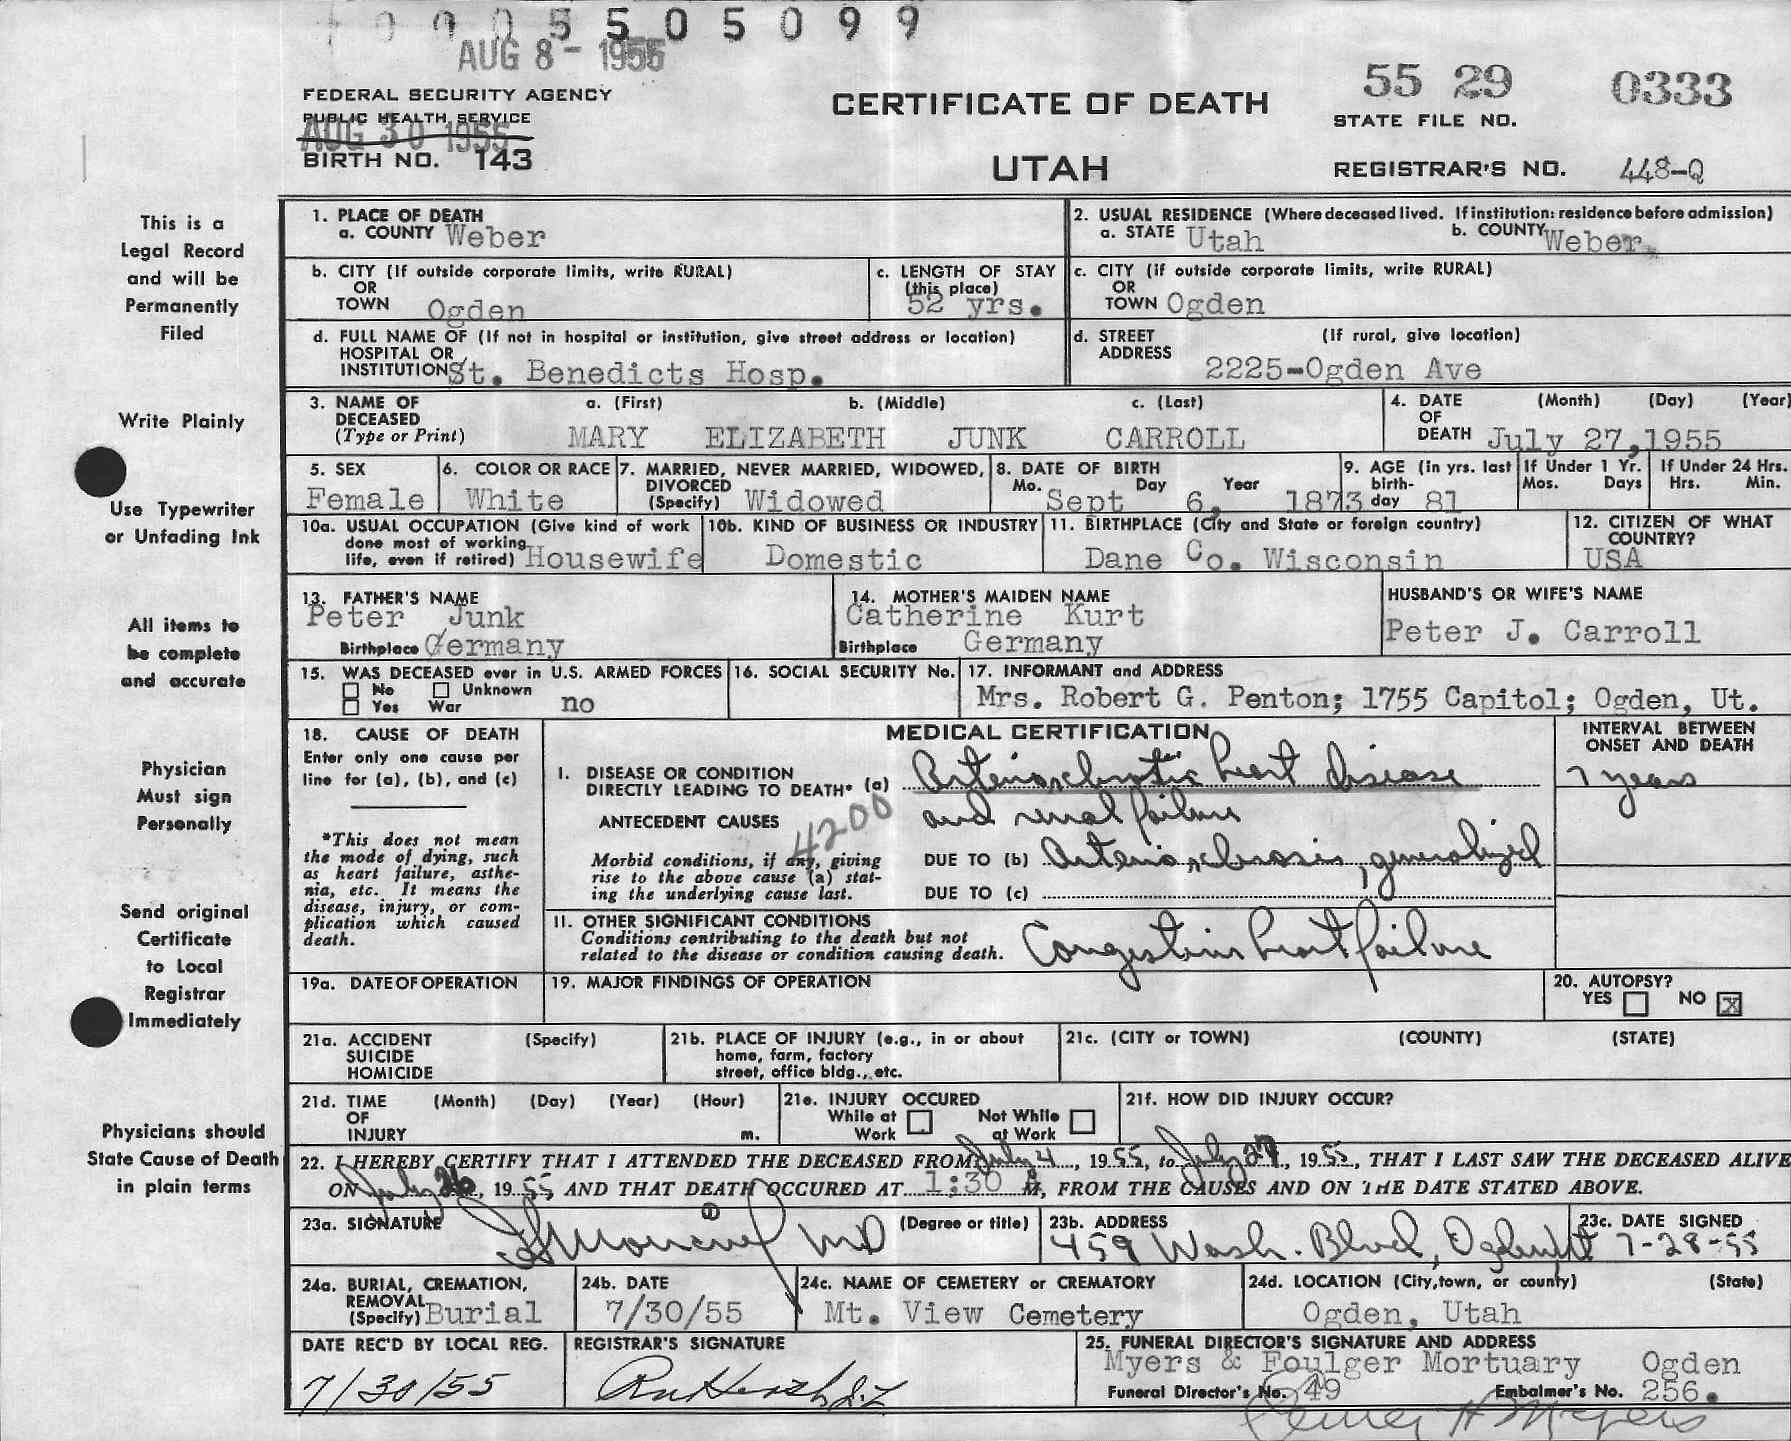 0005505099
AUG 8 - 1955
FEDERAL SECURITY AGENCY
PUBLIC HEALTH SERVICE
AUG 30 1955
BIRTH NO. 143
CERTIFICATE OF DEATH
UTAH
55 29 0333
STATE FILE NO.
REGISTRAR'S NO. 448-Q
This is a
Legal Record
and will be
Permanently
Filed
Write Plainly
Use Typewriter
or Unfading Ink
All items to
be complete
and accurate
Physician
Must sign
Personally
Send original
Certificate
to Local
Registrar
Immediately
Physicians should
State Cause of Death
in plain terms
1. PLACE OF DEATH
a. COUNTY Weber
2. USUAL RESIDENCE (Where deceased lived. If institution: residence before admission)
a. STATE Utah b. COUNTY Weber
b. CITY (If outside corporate limits, write RURAL)
OR
TOWN Ogden
c. LENGTH OF STAY
(this place)
52 yrs.
c. CITY (if outside corporate limits, write RURAL)
OR
TOWN Ogden
d. FULL NAME OF (If not in hospital or institution, give street address or location)
HOSPITAL OR
INSTITUTION St. Benedicts Hosp.
d. STREET (If rural, give location)
ADDRESS
2225-Ogden Ave
3. NAME OF a. (First) b. (Middle) c. (Last)
DECEASED
(Type or Print) MARY ELIZABETH JUNK CARROLL
4. DATE (Month) (Day) (Year)
OF
DEATH July 27, 1955
5. SEX
Female
6. COLOR OR RACE
White
7. MARRIED, NEVER MARRIED, WIDOWED,
DIVORCED
(Specify) Widowed
8. DATE OF BIRTH
Mo. Day Year
Sept 6, 1873
9. AGE (in yrs. last
birth-
day 81
If Under 1 Yr.
Mos. Days
If Under 24 Hrs.
Hrs. Min.
10a. USUAL OCCUPATION (Give kind of work
done most of working
life, even if retired) Housewife
10b. KIND OF BUSINESS OR INDUSTRY
Domestic
11. BIRTHPLACE (City and State or foreign country)
Dane Co. Wisconsin
12. CITIZEN OF WHAT
COUNTRY?
USA
13. FATHER'S NAME
Peter Junk
Birthplace Germany
14. MOTHER'S MAIDEN NAME
Catherine Kurt
Birthplace Germany
HUSBAND'S OR WIFE'S NAME
Peter J. Carroll
15. WAS DECEASED ever in U.S. ARMED FORCES
No Unknown
Yes War no
16. SOCIAL SECURITY No.
17. INFORMANT and ADDRESS
Mrs. Robert G. Penton; 1755 Capitol; Ogden, Ut.
18. CAUSE OF DEATH
Enter only one cause per
line for (a), (b), and (c)
*This does not mean
the mode of dying, such
as heart failure, asthe-
nia, etc. It means the
disease, injury, or com-
plication which caused
death.
MEDICAL CERTIFICATION
I. DISEASE OR CONDITION
DIRECTLY LEADING TO DEATH* (a) Arteriosclerotic heart disease
and renal failure
ANTECEDENT CAUSES
4200
Morbid conditions, if any, giving
rise to the above cause (a) stat-
ing the underlying cause last.
DUE TO (b) Arteriosclerosis, generalized
DUE TO (c)
II. OTHER SIGNIFICANT CONDITIONS
Conditions contributing to the death but not
related to the disease or condition causing death.
Congestive heart failure
INTERVAL BETWEEN
ONSET AND DEATH
7 years
19a. DATE OF OPERATION
19. MAJOR FINDINGS OF OPERATION
20. AUTOPSY?
YES NO X
21a. ACCIDENT (Specify)
SUICIDE
HOMICIDE
21b. PLACE OF INJURY (e.g., in or about
home, farm, factory
street, office bldg., etc.
21c. (CITY or TOWN) (COUNTY) (STATE)
21d. TIME (Month) (Day) (Year) (Hour)
OF
INJURY m.
21e. INJURY OCCURED
While at Not While
Work at Work
21f. HOW DID INJURY OCCUR?
22. I HEREBY CERTIFY THAT I ATTENDED THE DECEASED FROM July 4, 1955, to July 27, 1955, THAT I LAST SAW THE DECEASED ALIVE
ON July 26, 1955 AND THAT DEATH OCCURED AT 1:30 M, FROM THE CAUSES AND ON THE DATE STATED ABOVE.
23a. SIGNATURE (Degree or title)
MD
23b. ADDRESS
459 Wash. Blvd, Ogden Ut
23c. DATE SIGNED
7-28-55
24a. BURIAL, CREMATION,
REMOVAL
(Specify) Burial
24b. DATE
7/30/55
24c. NAME OF CEMETERY or CREMATORY
Mt. View Cemetery
24d. LOCATION (City, town, or county) (State)
Ogden, Utah
DATE REC'D BY LOCAL REG.
7/30/55
REGISTRAR'S SIGNATURE
25. FUNERAL DIRECTOR'S SIGNATURE AND ADDRESS
Myers & Foulger Mortuary Ogden
Funeral Director's No. 49 Embalmer's No. 256.